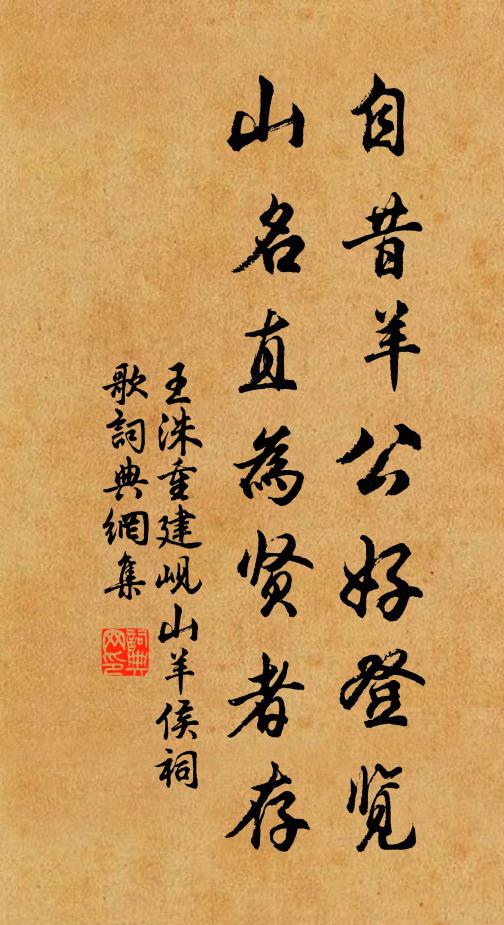 自昔羊公好登览
山名直為贤者存
王洙重建岘山羊侯祠
歌詞典網集
詞典网印